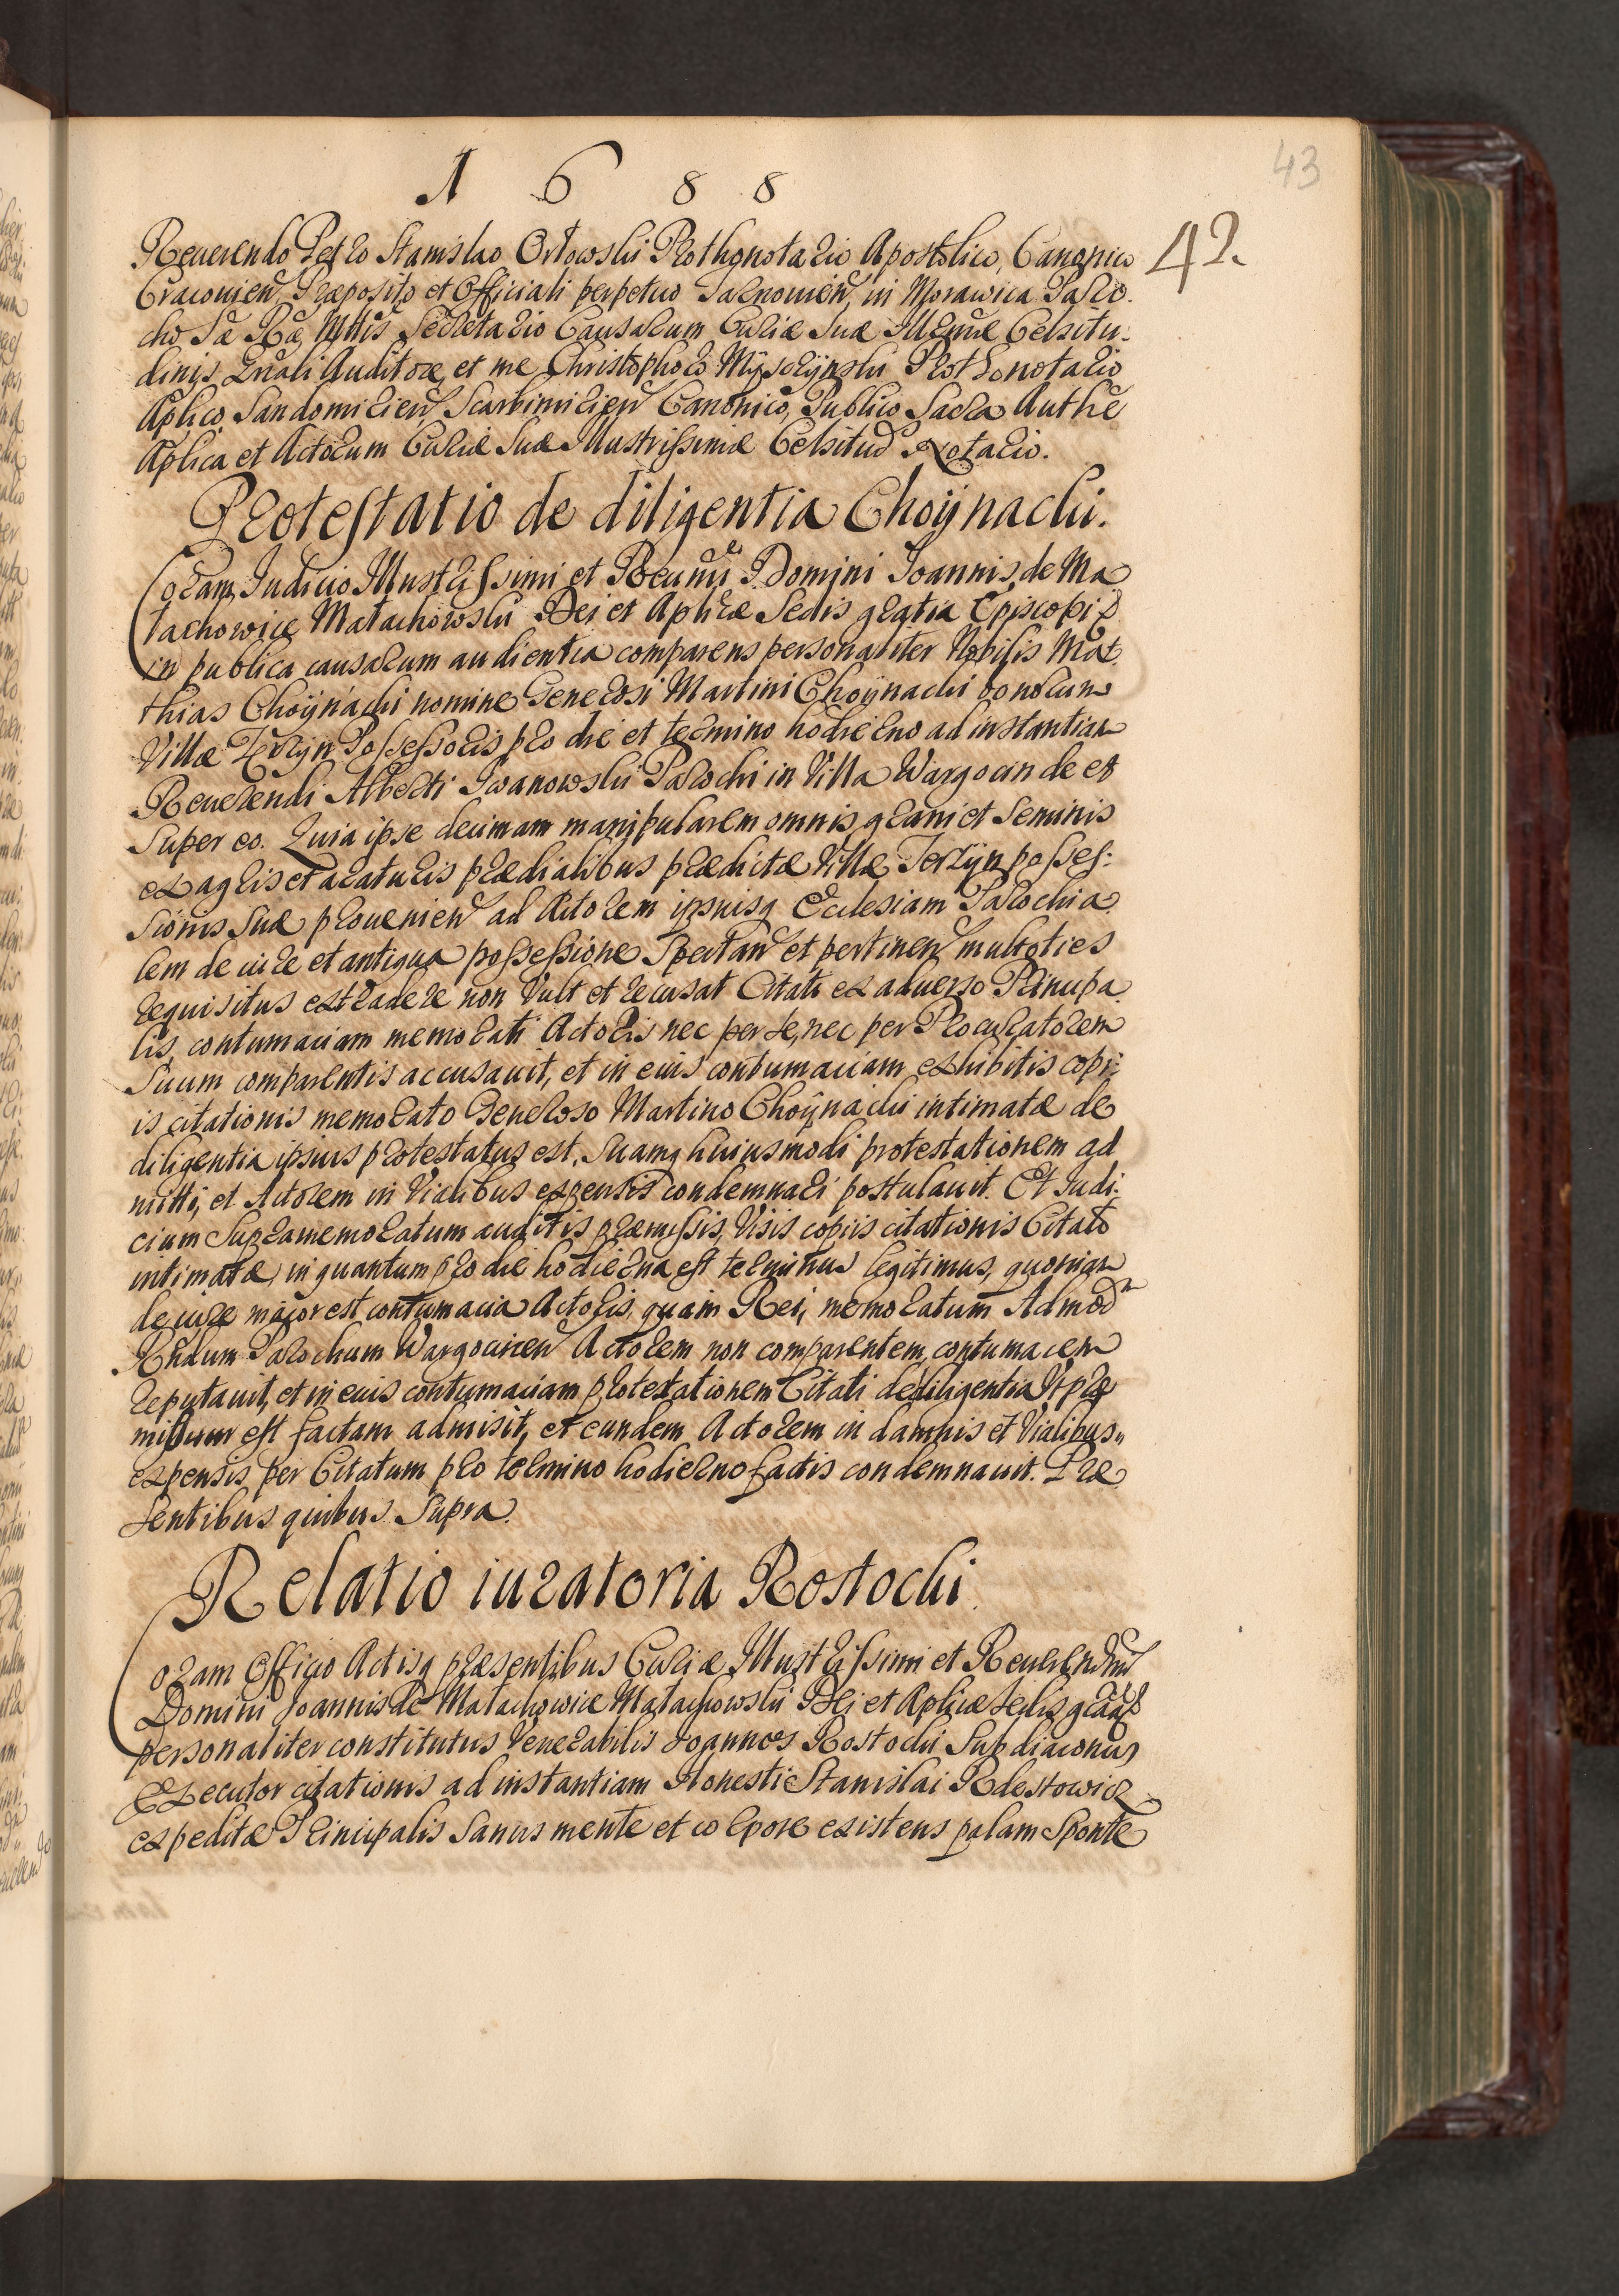 1688
43
42.
Reuerendo Petro Stanislao Orłowski Prothonotario Apostolico, Canonico
Cracouien, Præposito et Officiali perpetuo Tarnouien, in Morawica Paro-
cho Sæ Ræ Mttis Secretario Causarum Curiæ Suæ Illmæ Celsitu-
dinis Grali Auditore, et me Christophoro Mysczynski Prothonotario
Aplico, Sandomirien, Scarbimirien Canonico, Publico Sacra Authe
Aplica et Actorum Curiæ Suæ Illustrissimæ Celsitud Notario.
Protestatio de diligentia Choÿnacki.
Coram Iudicio Illustrissimi et Rndmi Domini Ioannis de Ma
łachowice Małachowski Dei et Aplicæ Sedis gratia Episcopi
in publica causarum audientia comparens personaliter Nobilis Mat
thias Choÿnacki nomine Generosi Martini Choÿnacki bonorum
Villæ Possessoris pro die et termino hodierno ad instantiam
Reuerendi Alberti Iwanowski Parochi in Villa Wargocin de et
super eo. Quia ipse decimam manipularem omnis grani et Seminis
ex agris et araturis prædialibus prædictæ Villæ possess:
sionis suæ prouenien ad Actorem ipsiusq Ecclesiam Parochia
lem de iure et antiqua possessione spectan et pertinen multoties
requisitus extradere non vult et recusat Citati ex aduerso Principa
lis, contumaciam memorati Actoris nec per se, nec per Procuratorem
suum comparentis accusauit, et in eius contumaciam exhibitis copi:
is citationis memorato Generoso Martino Choÿnacki intimatæ de
diligentia ipsius protestatus est, suamq huiusmodi protestationem ad
mitti, et Actorem in Vialibus expensis condemnari postulauit. Et Iudi:
cium supramemoratum auditis præmissis, Visis copiis citationis Citato
intimatæ, in quantum pro die hodierna est terminus legitimus, quoniam
de iure maior est contumacia Actoris, quam Rei, memoratum Admodm
Rndum Parochum Wargocinen Actorem non comparentem, contumacem
reputauit, et in euis contumaciam protestationem Citati de diligentia Vt præ
missum est factam admisit, et eundem Actorem in damnis et Vialibus
expensis per Citatum pro termino hodierno factis condemnauit. Præ
sentibus quibus Supra.
Relatio iuratoria Rostocki
Coram Officio Actisq præsentibus Curiæ Illustrissimi et Reuerendmi
Domini Ioannis de Małachowice Małachowski Dei et Aplicæ Sedis
personaliter constitutus Venerabilis Ioannes Rostocki Subdiaconus
Executor citationis ad instantiam Honesti Stanislai Rdestowicz
expeditæ Principalis Sanus mente et corpore existens palam Sponte